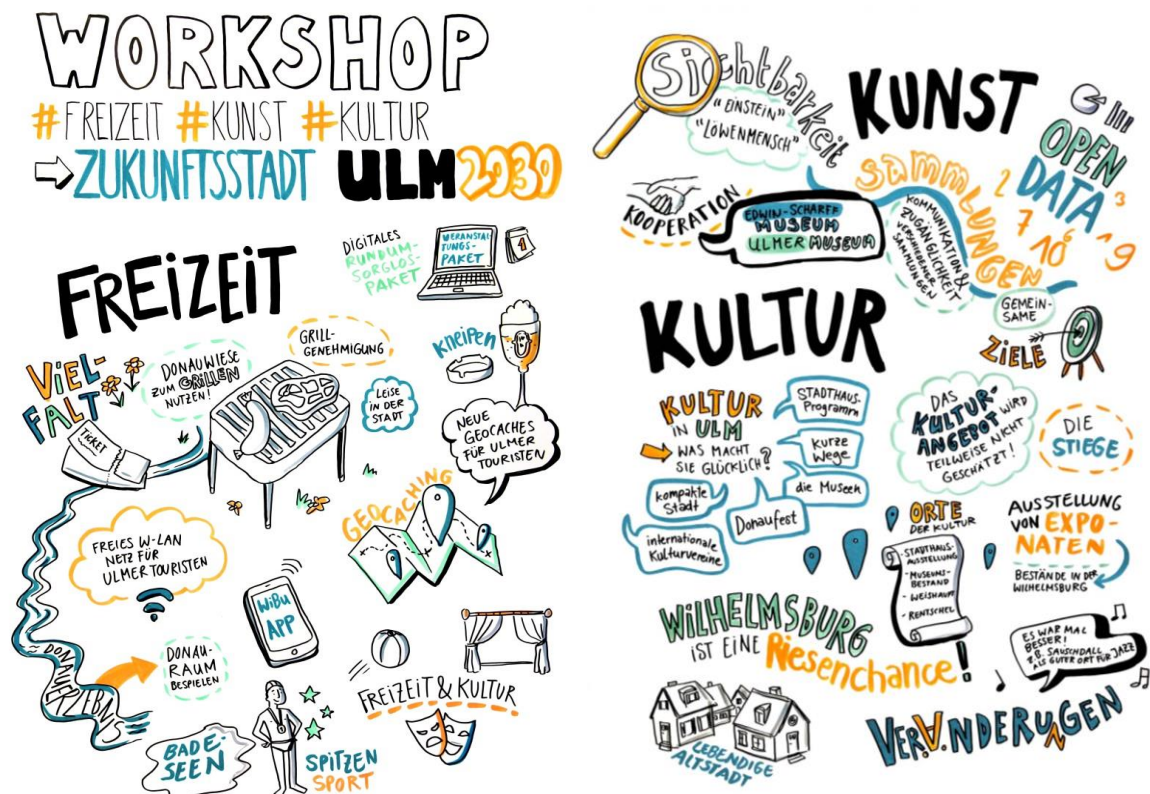 WORKSHOP
#FREIZEIT #KUNST #KULTUR
ZUKUNFTSSTADT ULM 2030
FREIZEIT
DIGITALES
RUNDUM-
SORGLOS-
PAKET
VERANSTAL
TUNGS-
PAKET
1
VIEL-
FALT
TICKET
DONAUWIESE
ZUM GRILLEN
NUTZEN!
GRILL-
GENEHMIGUNG
KNEiPEN
LEISE
IN DER
STADT
NEUE
GEOCACHES
FÜR ULMER
TOURISTEN
GEOCACHING
FREIES W-LAN
NETZ FÜR
ULMER TOURISTEN
WiBu
APP
DONAU-
RAUM
BESPIELEN
BADE-
SEEN
SPiTZEN
SPORT
FREIZEIT & KULTUR
Sichtbarkeit
"EINSTEIN"
"LÖWENMENSCH"
KUNST
OPEN
DATA
2
7
10
6
3
1
9
KOOPERATION
EDWIN-SCHARFF
MUSEUM
ULMER MUSEUM
SAMMLUNGEN
KOMMUNIKATION &
ZUGÄNGLICHKEIT
VERSCHIEDENER
SAMMLUNGEN
GEMEIN-
SAME
ZiELE
KULTUR
KULTUR
IN ULM
WAS MACHT
SIE GLÜCKLICH?
STADTHAUS-
Programm
Kurze
Wege
die Museen
kompakte
Stadt
Donaufest
internationale
Kulturvereine
DAS
KULTUR-
ANGEBOT WIRD
TEILWEISE NICHT
GESCHÄTZT!
DIE
STIEGE
ORTE
DER KULTUR
- STADTHAUS-
AUSSTELLUNG
- MUSEUMS-
BESTAND
- WEISHAUPT
- RENTSCHEL
AUSSTELLUNG
VON EXPO-
NATEN
BESTÄNDE IN DER
WILHELMSBURG
WiLHELMSBURG
iST EiNE Riesenchance!
ES WAR MAL
BESSER!
Z.B. SAUSCHDALL
ALS GUTER ORT FÜR JAZZ
LEBENDIGE
ALTSTADT
VERÄNDERUNGEN